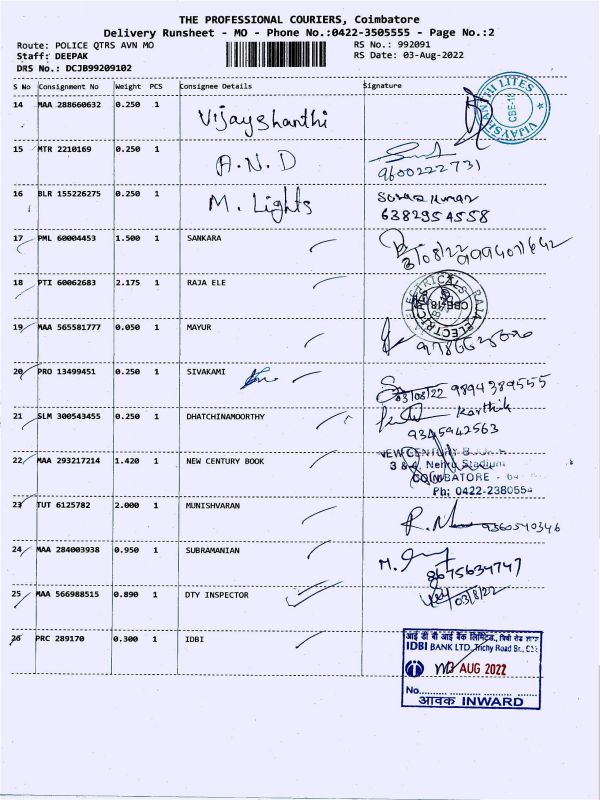 THE PROFESSIONAL COURIERS, Coimbatore
Delivery Runsheet - MO - Phone No.:0422-3505555 - Page No.:2
Route: POLICE QTRS AVN MO RS No.: 992091
Staff: DEEPAK RS Date: 03-Aug-2022
DRS No.: DCJB99209102
S No Consignment No Weight PCS Consignee Details Signature
14 MAA 288660632 0.250 1 Vijayshanthi
VIJAYSHANTHI LITES CBE-18
15 MTR 2210169 0.250 1 A.N.D
9600222731
16 BLR 155226275 0.250 1 M. Lights
6382954558
17 PML 60004453 1.500 1 SANKARA
3/08/22
18 PTI 60062683 2.175 1 RAJA ELE
RAJA ELECTRICALS
19 MAA 565581777 0.050 1 MAYUR
20 PRO 13499451 0.250 1 SIVAKAMI
03/08/22 9894389555
21 SLM 300543455 0.250 1 DHATCHINAMOORTHY
Karthik
9345942563
22 MAA 293217214 1.420 1 NEW CENTURY BOOK
NEW CENTURY
3 & 4, Nehru Stadium
COIMBATORE
Ph: 0422-238055
23 TUT 6125782 2.000 1 MUNISHVARAN
9360540346
24 MAA 284003938 0.950 1 SUBRAMANIAN
8675634747
25 MAA 566988515 0.890 1 DTY INSPECTOR
03/8/22
26 PRC 289170 0.300 1 IDBI
आई डी बी आई बैंक लिमिटेड.,
IDBI BANK LTD, Trichy Road Br.,
03 AUG 2022
No.
आवक INWARD